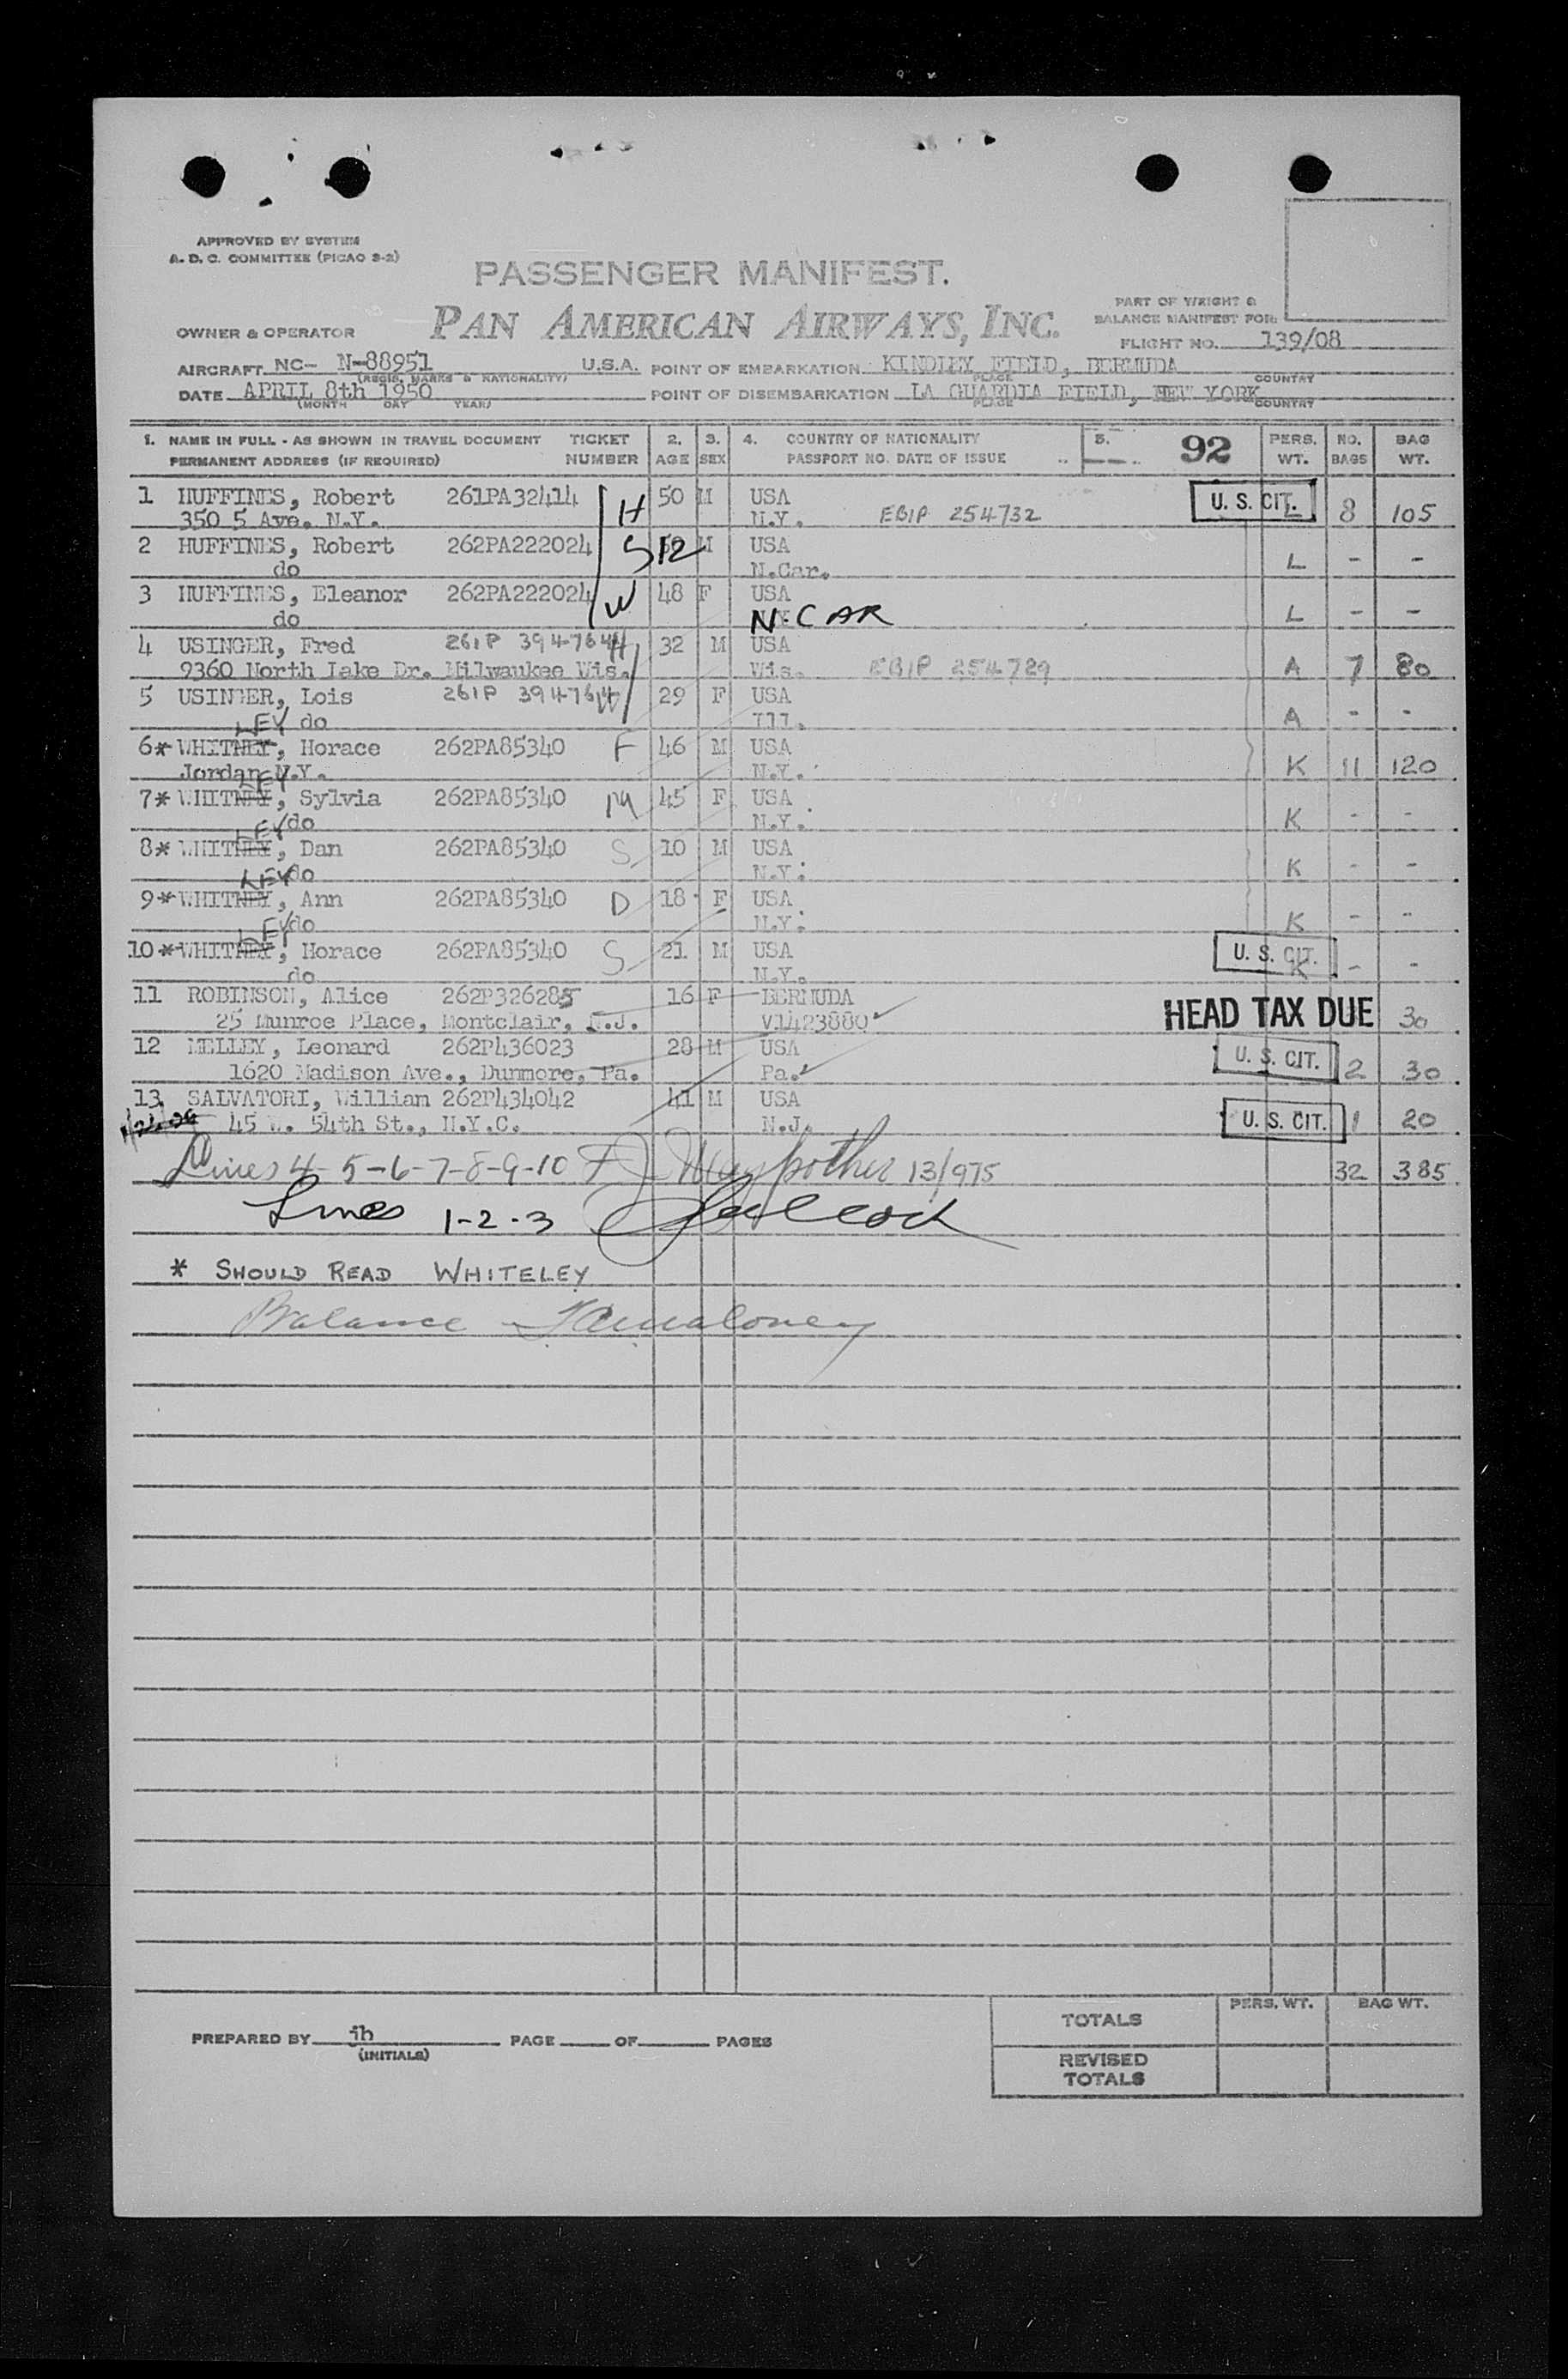 APPROVED BY SYSTEM
A. D. C. COMMITTEE (PICAO 3-2)
PASSENGER MANIFEST.
PAN AMERICAN AIRWAYS, INC.
PART OF WEIGHT &
BALANCE MANIFEST FOR:
OWNER & OPERATOR
FLIGHT NO. 139/08
AIRCRAFT NC- N-88951 U.S.A. POINT OF EMBARKATION KINDLEY FIELD, BERMUDA
(REGIS. MARKS & NATIONALITY) PLACE COUNTRY
DATE APRIL 8th 1950 POINT OF DISEMBARKATION LA GUARDIA FIELD, NEW YORK
(MONTH DAY YEAR) PLACE COUNTRY
1. NAME IN FULL - AS SHOWN IN TRAVEL DOCUMENT TICKET 2. 3. 4. COUNTRY OF NATIONALITY 5. 92 PERS. NO. BAG
PERMANENT ADDRESS (IF REQUIRED) NUMBER AGE SEX PASSPORT NO. DATE OF ISSUE WT. BAGS WT.
1 HUFFINES, Robert 261PA32414 H 50 M USA U. S. CIT.
350 5 Ave. N.Y. N.Y. EBIP 254732 L 8 105
2 HUFFINES, Robert 262PA222024 S 12 M USA
do N.Car. L - -
3 HUFFINES, Eleanor 262PA222024 W 48 F USA
do N.CAR L - -
4 USINGER, Fred 261P 394764 H 32 M USA
9360 North Lake Dr. Milwaukee Wis. Wis. EBIP 254729 A 7 80
5 USINGER, Lois 261P 394764 W 29 F USA
LEY do Ill. A - -
6* WHITNEY, Horace 262PA85340 F 46 M USA
Jordan N.Y. LEY N.Y. K 11 120
7* WHITNEY, Sylvia 262PA85340 M 45 F USA
LEY do N.Y. K - -
8* WHITNEY, Dan 262PA85340 S 10 M USA
LEY do N.Y. K - -
9* WHITNEY, Ann 262PA85340 D 18 F USA
LEY do N.Y. K - -
10* WHITNEY, Horace 262PA85340 S 21 M USA U. S. CIT.
do N.Y. K - -
11 ROBINSON, Alice 262P326285 16 F BERMUDA HEAD TAX DUE
25 Munroe Place, Montclair, N.J. V1423880 30
12 MELLEY, Leonard 262P436023 28 M USA U. S. CIT.
1620 Madison Ave., Dunmore, Pa. Pa. 2 30
13 SALVATORI, William 262P434042 41 M USA
45 W. 54th St., N.Y.C. N.J. U. S. CIT. 1 20
Lines 4-5-6-7-8-9-10 13/975 32 385
Lines 1-2-3
* SHOULD READ WHITELEY
Balance
PREPARED BY jb PAGE OF PAGES
(INITIALS)
TOTALS PERS. WT. BAG WT.
REVISED
TOTALS